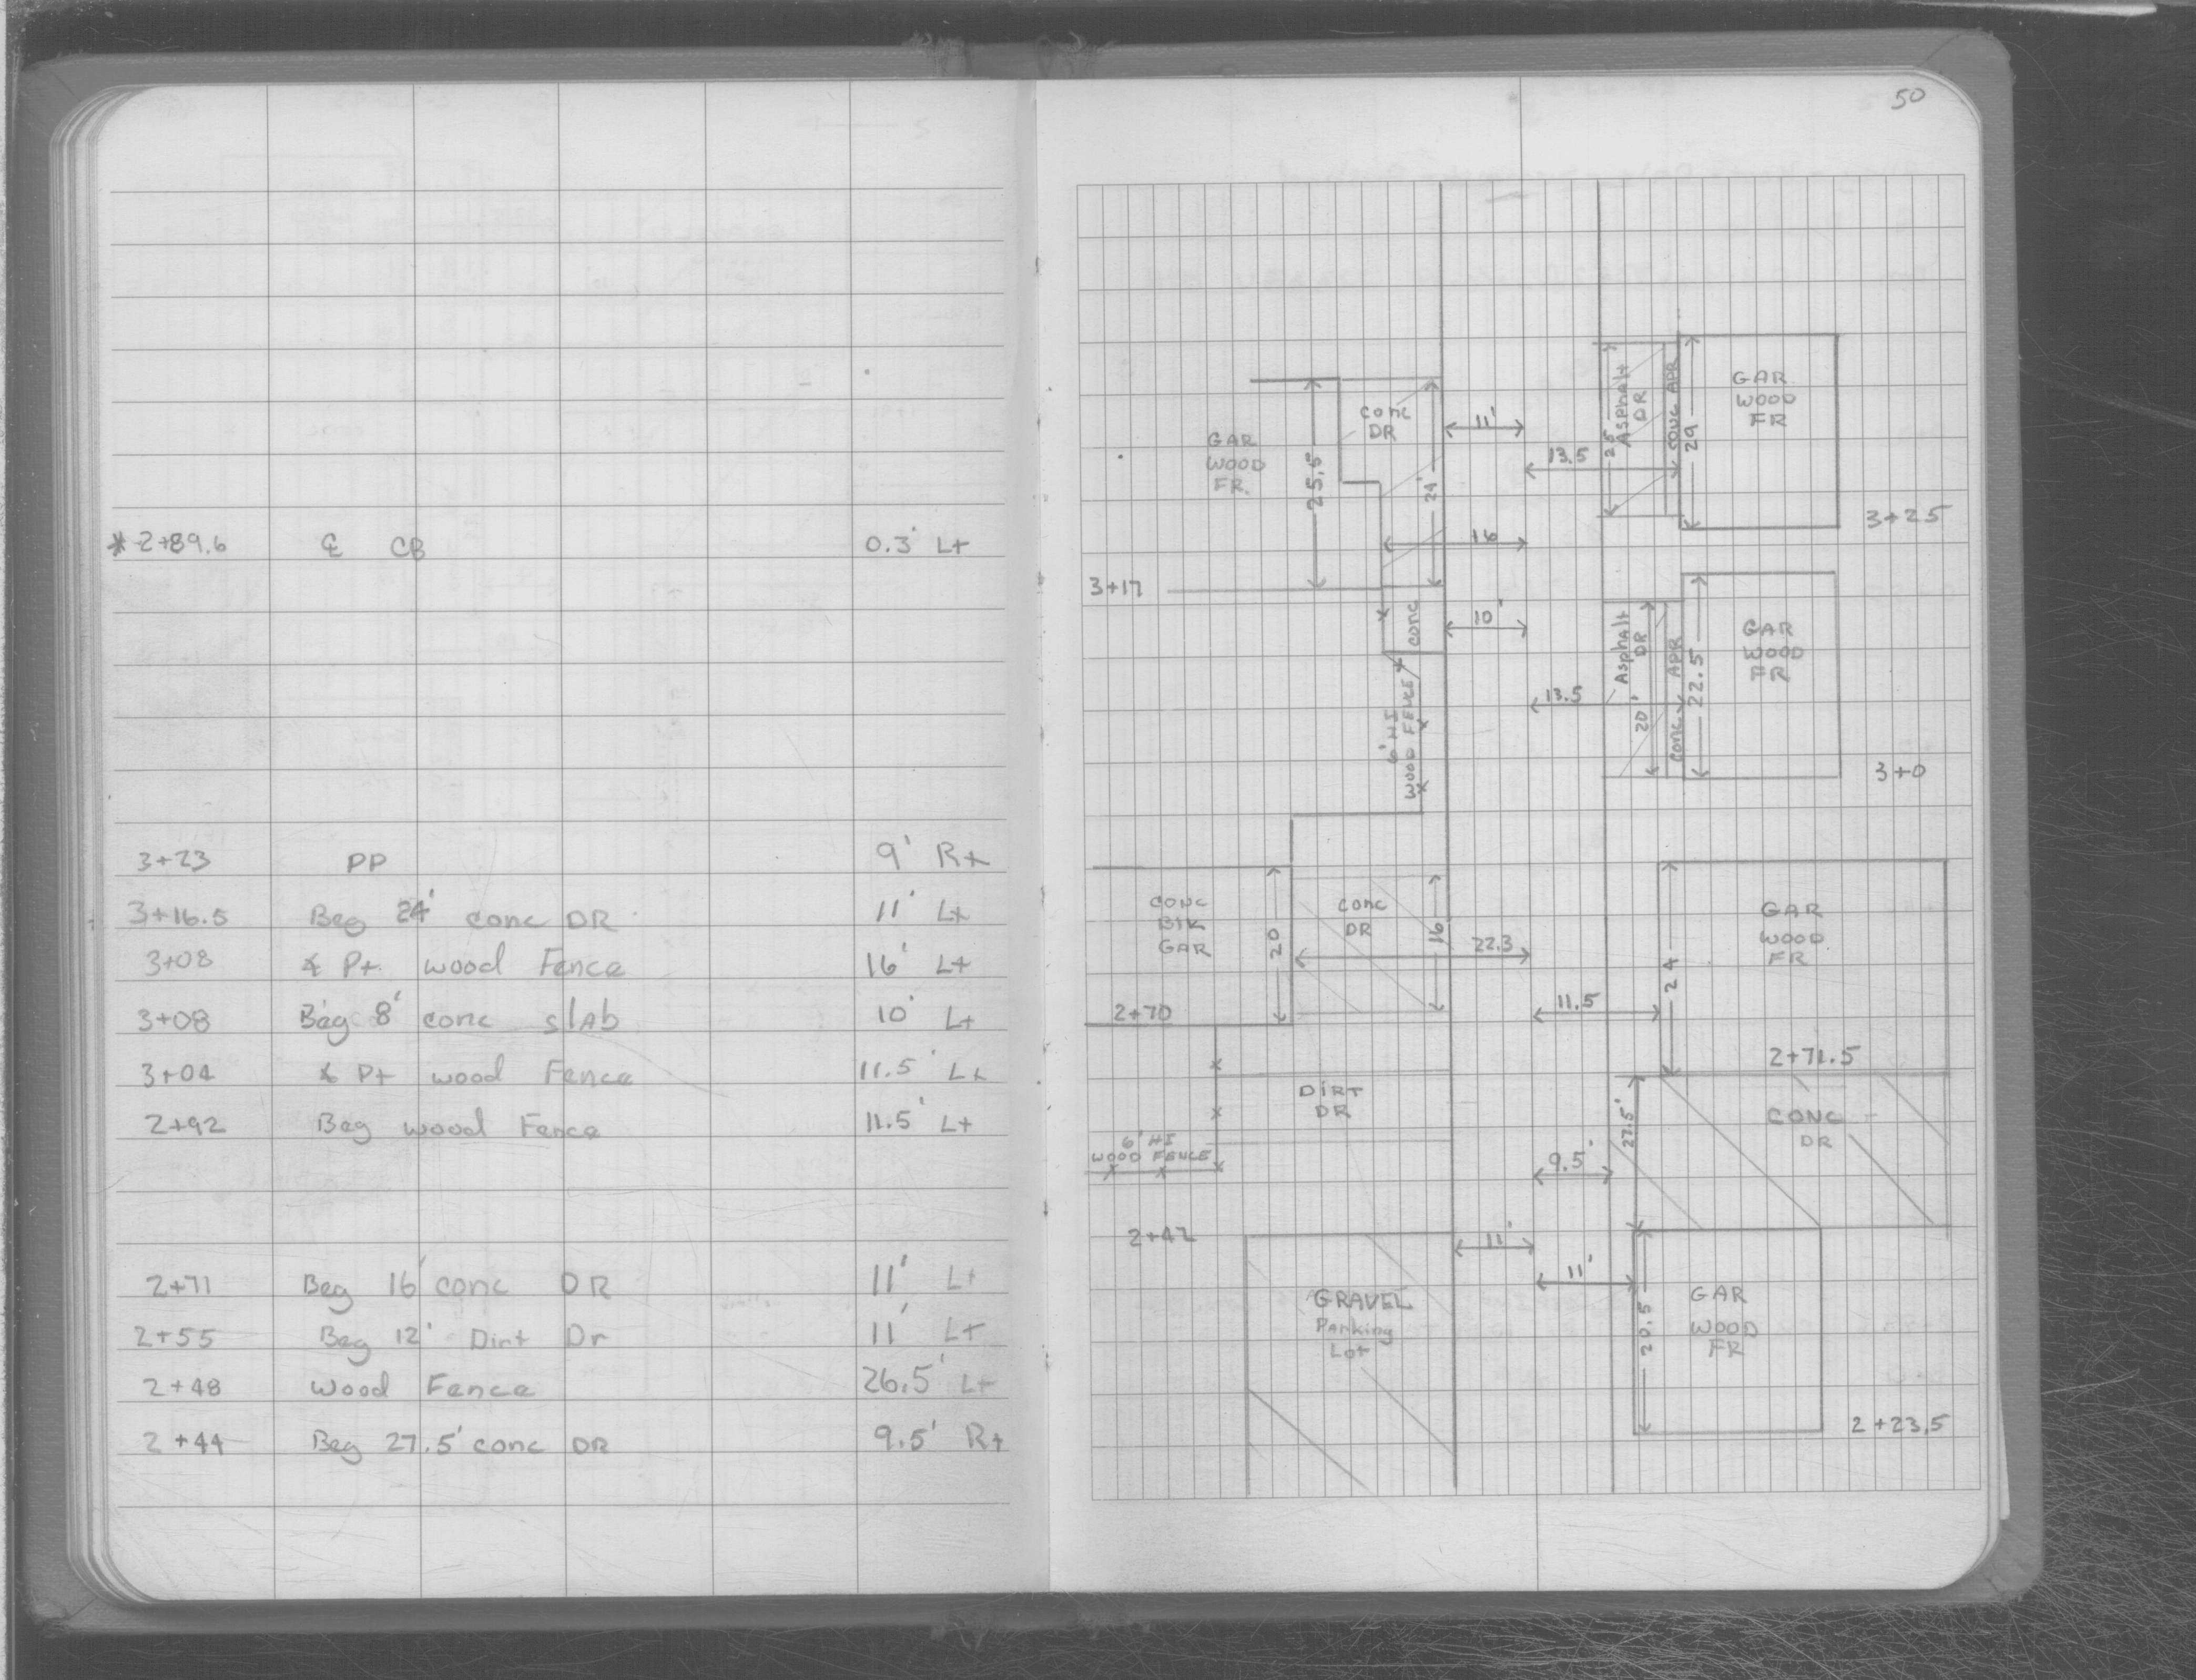 50
*2+89.6 ℄ CB 0.3' Lt
3+23 PP 9' Rt
3+16.5 Beg 24' conc DR 11' Lt
3+08 ∡ Pt. wood Fence 16' Lt
3+08 Beg 8' conc slab 10' Lt
3+04 ∡ Pt wood Fence 11.5' Lt
2+92 Beg wood Fence 11.5' Lt
2+71 Beg 16' conc DR 11' Lt
2+55 Beg 12' Dirt Dr 11' Lt
2+48 Wood Fence 26.5' Lt
2+44 Beg 27.5' conc DR 9.5' Rt
GAR
WOOD
FR.
25.5
conc
DR
24'
11'
16
3+17
13.5
25
Asphalt
DR
CONC APR
29
GAR
WOOD
FR
3+25
conc
10'
6' HI
WOOD FENCE
13.5
Asphalt
DR
20'
CONC APR
22.5
GAR
WOOD
FR
3+0
CONC
Blk
GAR
20
conc
DR
16
22.3
2+70
11.5
24
GAR
WOOD
FR
2+71.5
DIRT
DR
6' HI
WOOD FENCE
9.5'
27.5'
CONC
DR
2+42
11'
11'
GRAVEL
Parking
Lot
20.5
GAR
WOOD
FR
2+23.5